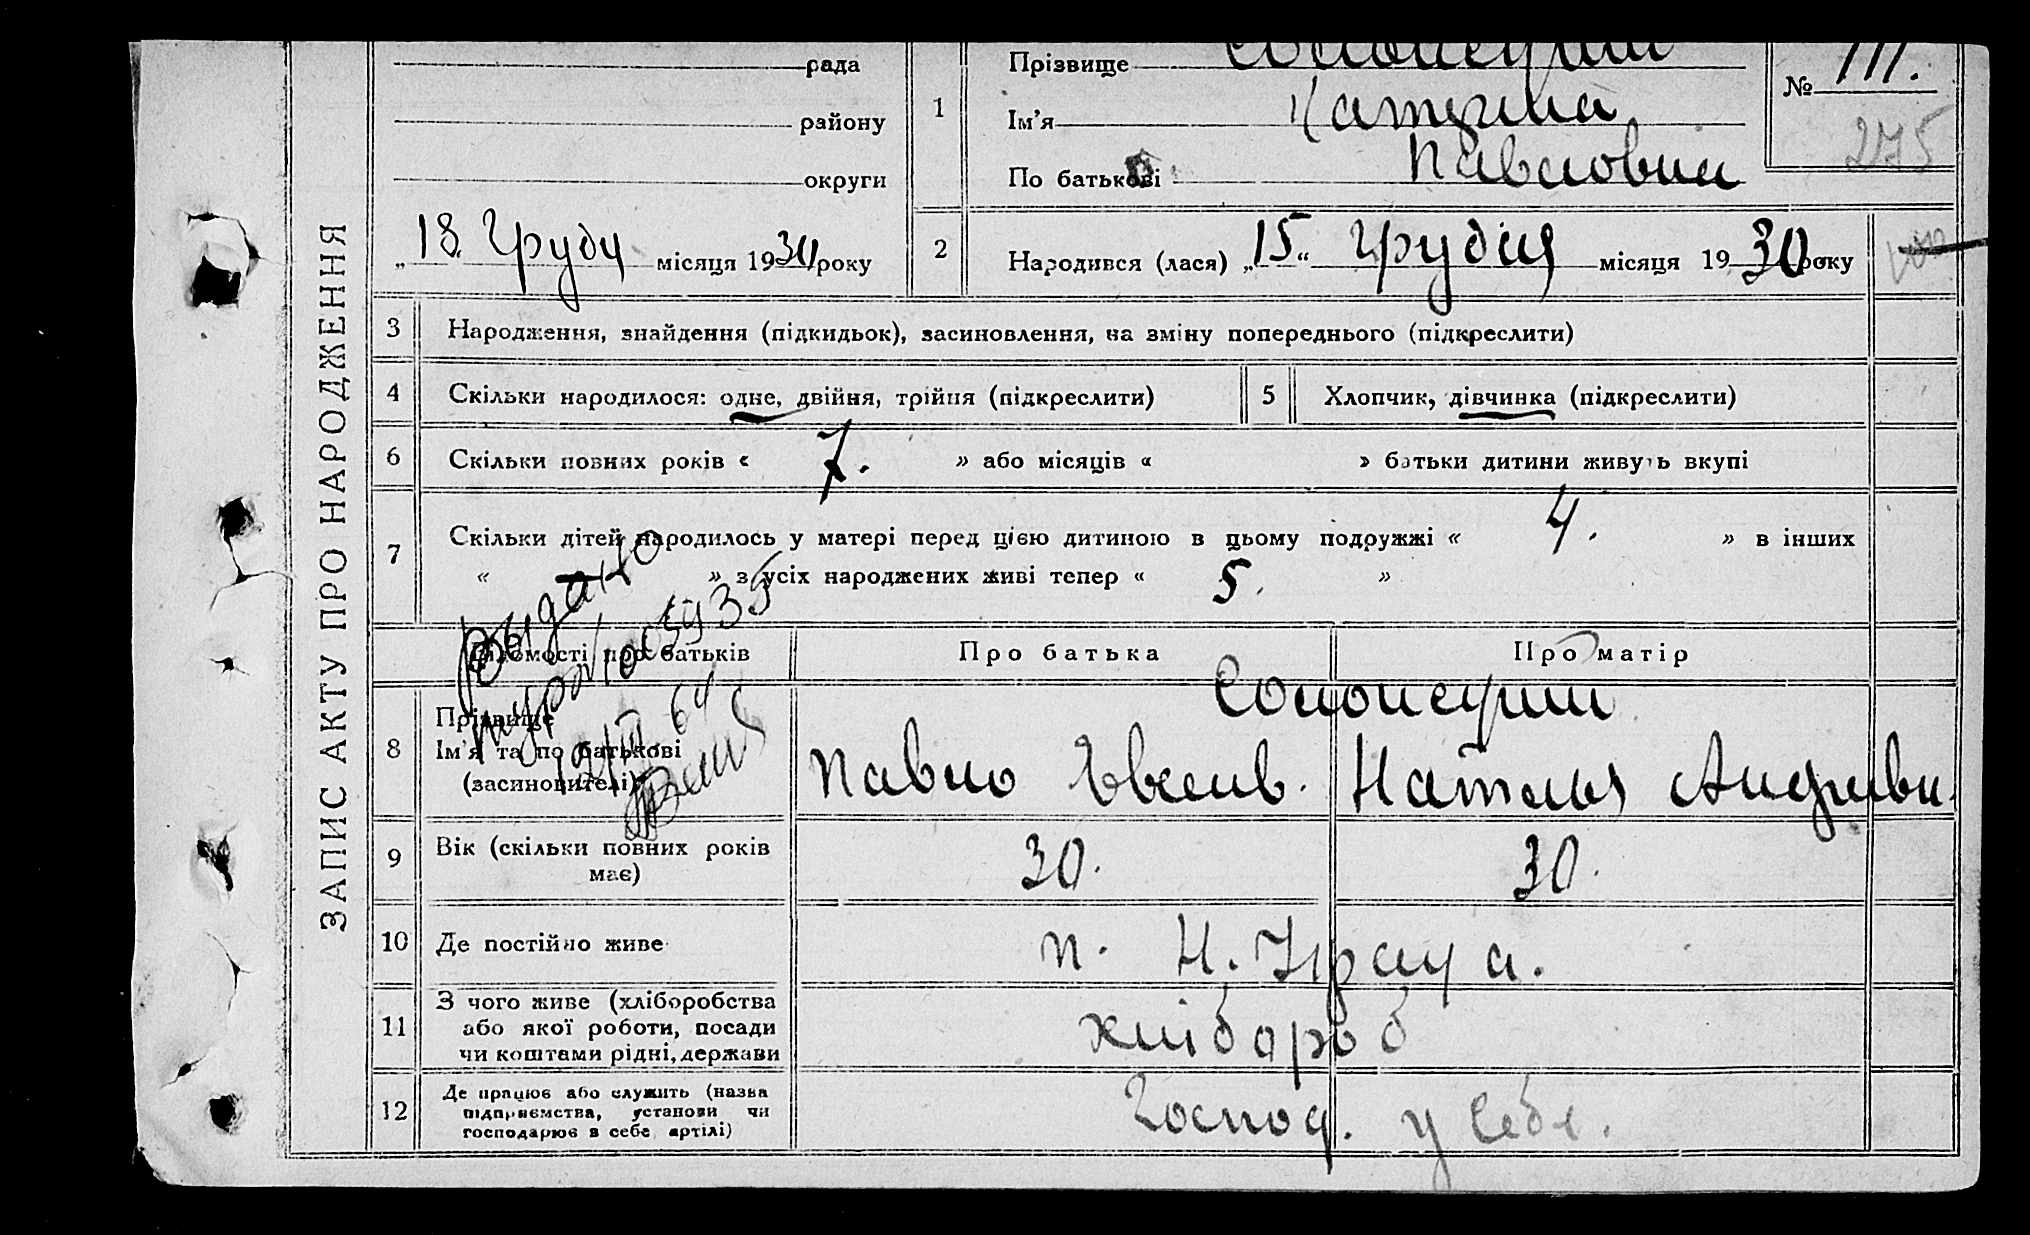 ЗАПИС АКТУ ПРО НАРОДЖЕННЯ
рада
району
округи
„18“ Груду місяця 1930 року
1
Прізвище
Ім'я Катерина
По батькові Павловна
№ 111.
275
2
Народився (лася) „15“ Грудня місяця 1930 року
3
Народження, знайдення (підкидьок), засиновлення, на зміну попереднього (підкреслити)
4
Скільки народилося: одне, двійня, трійня (підкреслити)
5
Хлопчик, дівчинка (підкреслити)
6
Скільки повних років « 7. » або місяців « » батьки дитини живуть вкупі
7
Скільки дітей народилось у матері перед цією дитиною в цьому подружжі « 4. » в інших
« — » з усіх народжених живі тепер « 5. »
Выдано
Відомості про батьків
Про батька
Про матір
8
Прізвище
Ім'я та по батькові
(засиновителі)
Павло Евсеив.
Наталья Андриевн.
9
Вік (скільки повних років має)
30.
30.
10
Де постійно живе
11
З чого живе (хліборобства
або якої роботи, посади
чи коштами рідні, держави
хлібороб
12
Де працює або служить (назва
підприємства, установи чи
господарює в себе, артілі)
Господ. у себе.